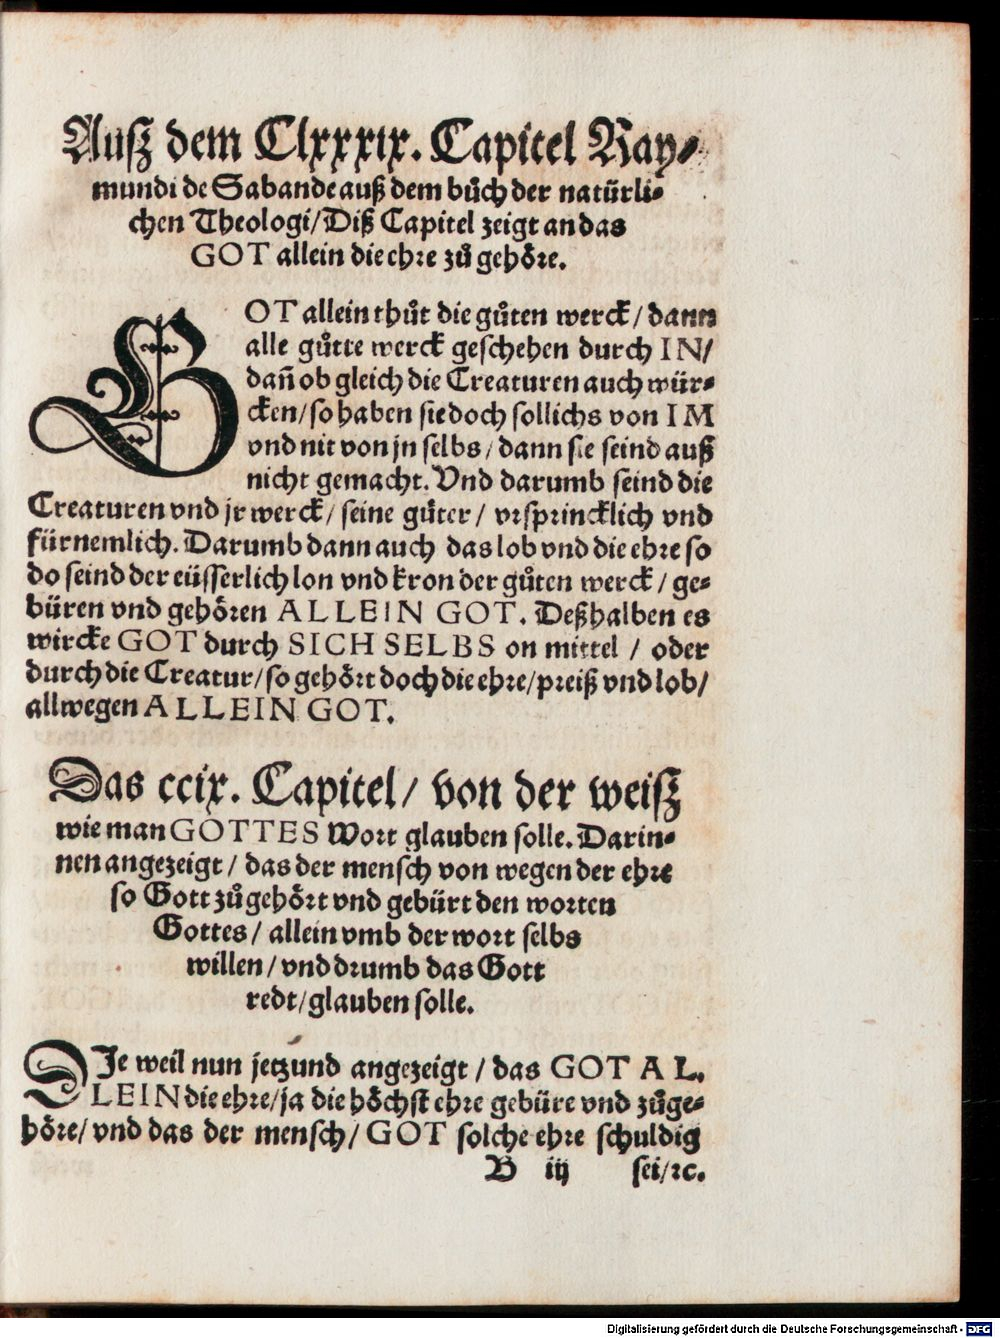 Auſz dem Clxxxix. Capitel Ray⸗
mundi de Sabande auß dem bůch der natürli⸗
chen Theologi/Diß Capitel zeigt an das
GOT allein die ehꝛe zů gehöꝛe.
GOT allein thůt die gůten werck/ dann
alle gůtte werck geſchehen durch IN/
dañ ob gleich die Creaturen auch wür⸗
cken/ſo haben ſie doch ſollichs von IM
vnd nit von jn ſelbs/ dann ſie ſeind auß
nicht gemacht. Vnd darumb ſeind die
Creaturen vnd jr werck/ ſeine gůter/ vꝛſpꝛincklich vnd
fürnemlich. Darumb dann auch das lob vnd die ehꝛe ſo
do ſeind der eüſſerlich lon vnd kron der gůten werck/ ge⸗
büren vnd gehöꝛen ALLEIN GOT. Deßhalben es
wircke GOT durch SICH SELBS on mittel / oder
durch die Creatur/ſo gehöꝛt doch die ehꝛe/pꝛeiß vnd lob/
allwegen ALLEIN GOT.
Das ccix. Capitel/ von der weiſz
wie man GOTTES Woꝛt glauben ſolle. Darin⸗
nen angezeigt / das der menſch von wegen der ehꝛe
ſo Gott zůgehöꝛt vnd gebürt den woꝛten
Gottes/ allein vmb der woꝛt ſelbs
willen/ vnd dꝛumb das Gott
redt/glauben ſolle.
DIe weil nun jetzund angezeigt / das GOT AL.
LEIN die ehꝛe/ja die höchſt ehꝛe gebüre vnd zůge⸗
höꝛe/ vnd das der menſch/ GOT ſolche ehꝛe ſchuldig
B iij ſei/ꝛc.
Digitalisierung gefördert durch die Deutsche Forschungsgemeinschaft - DFG